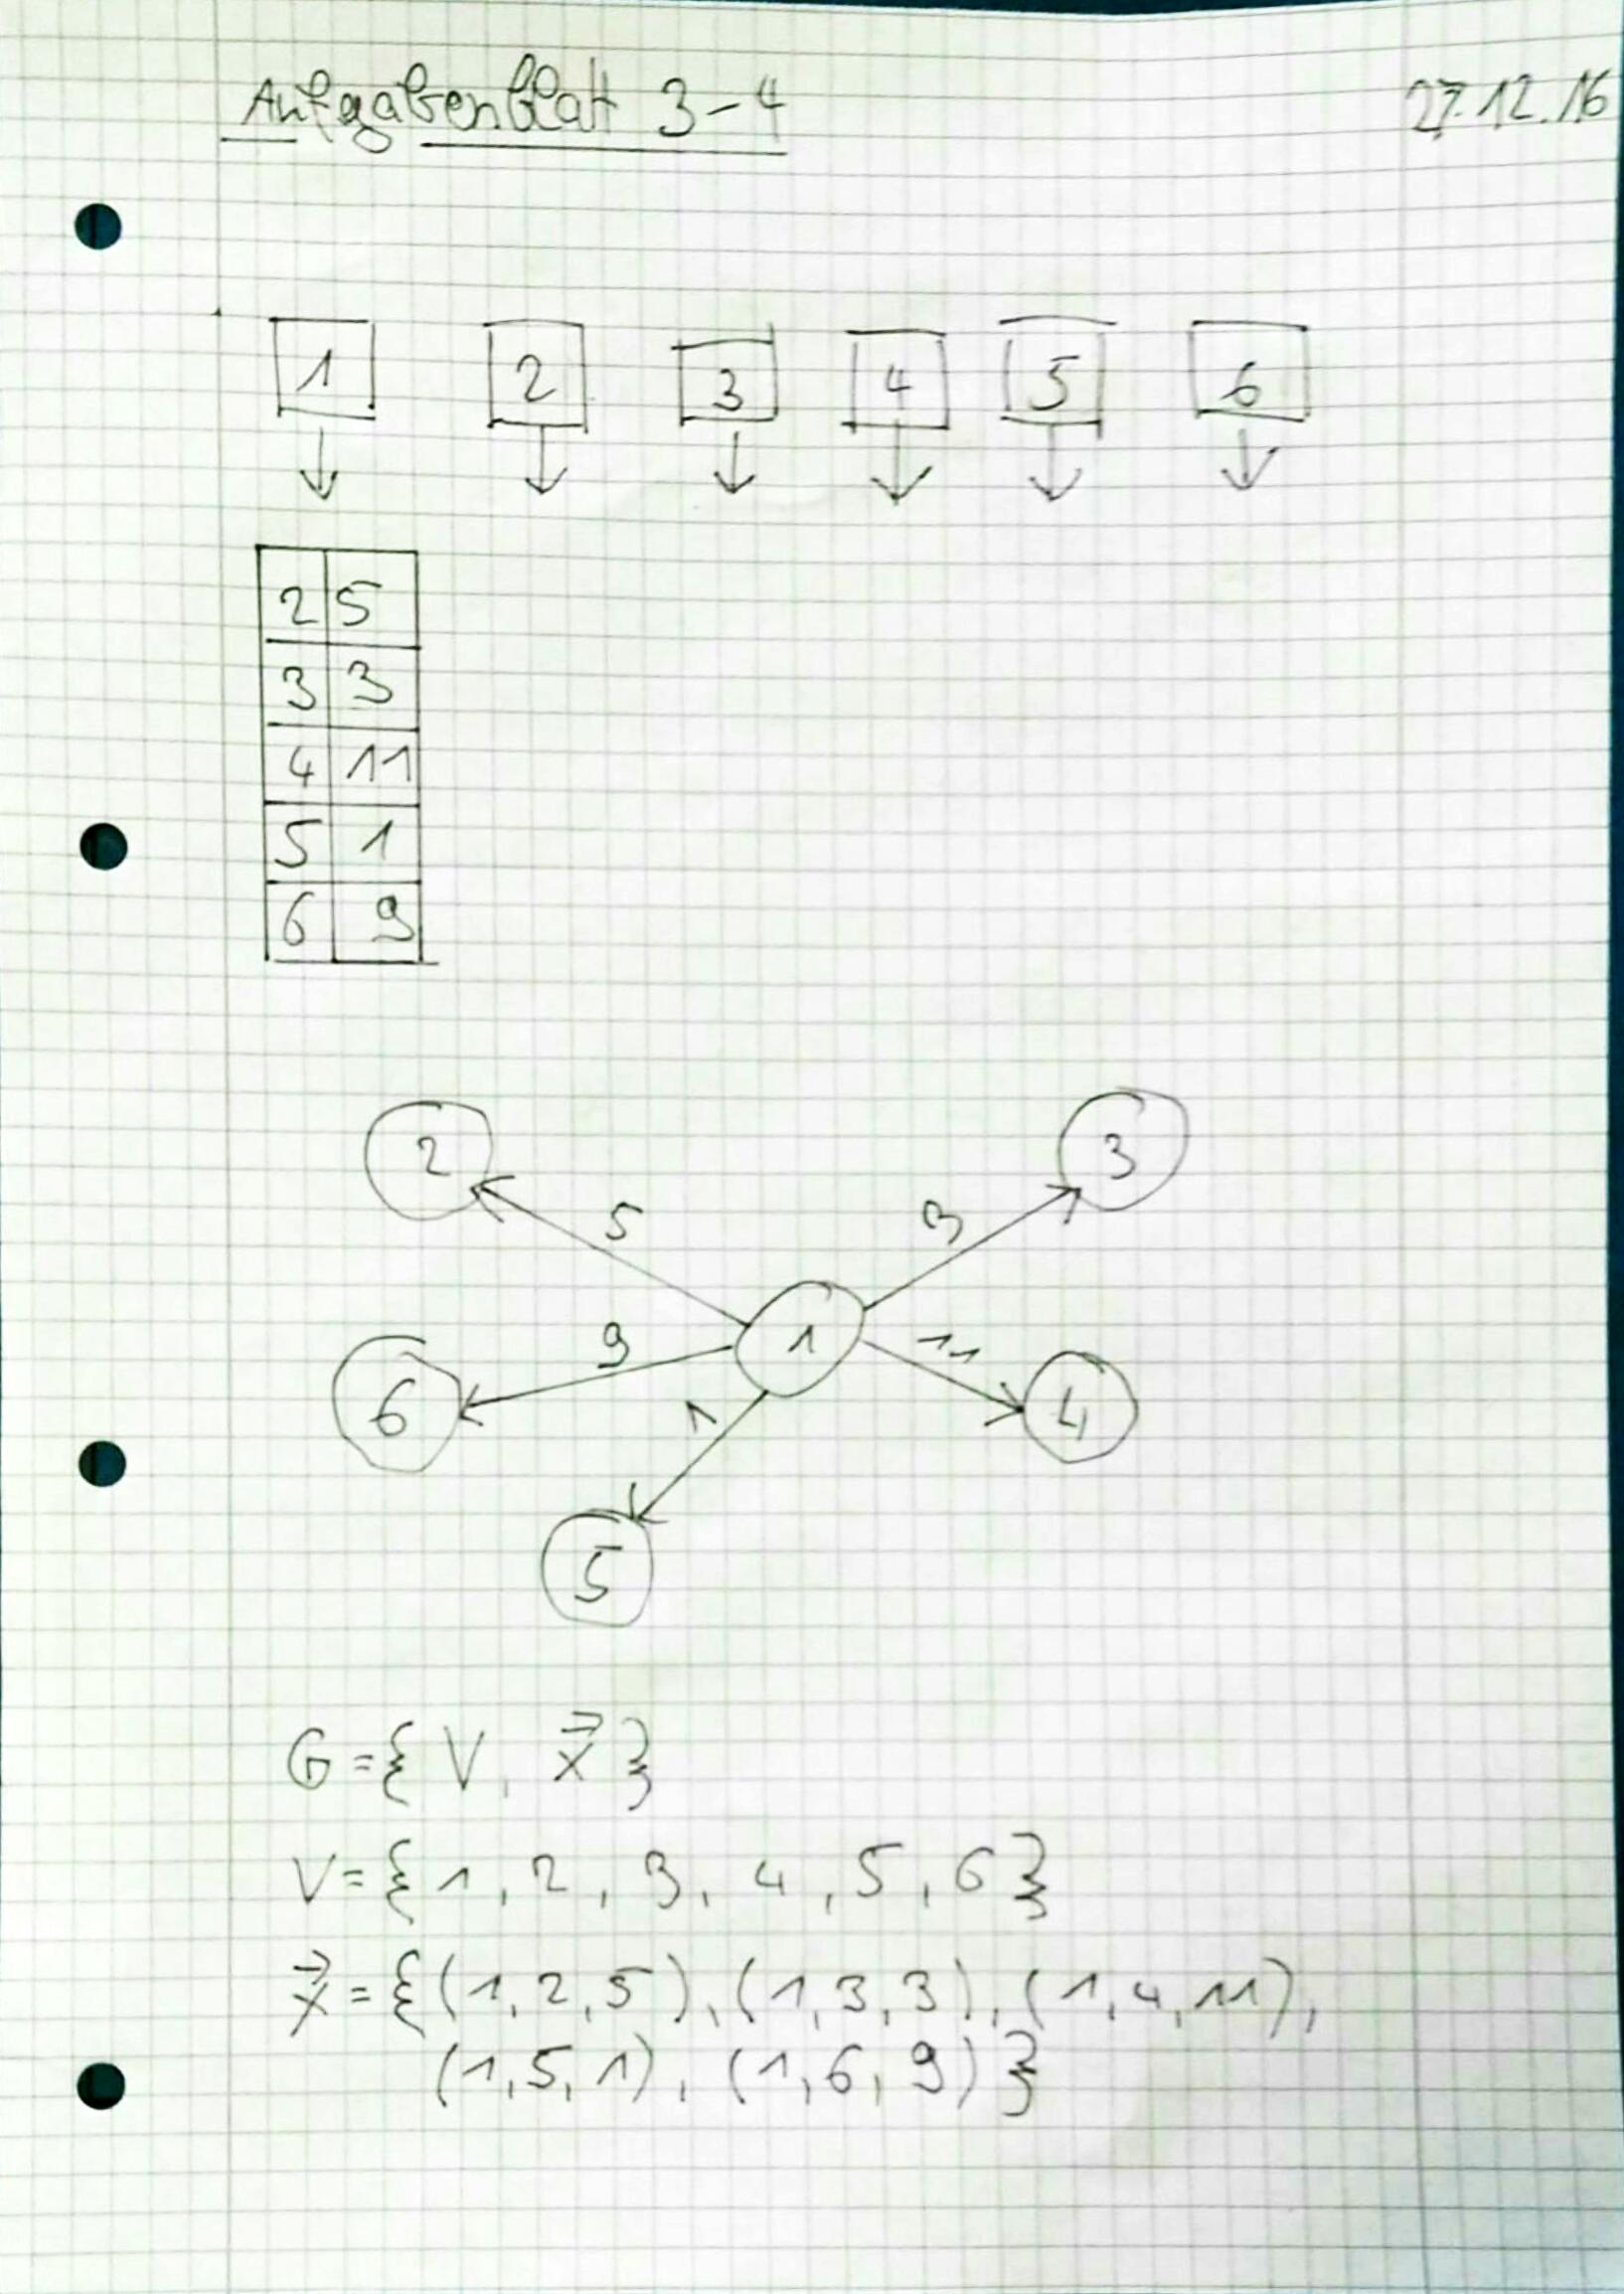 Aufgabenblatt 3-4 27.12.16
1 2 3 4 5 6
2 5
3 3
4 11
5 1
6 9
2 3
5 3
1
9 11
6 4
1
5
G={V, x⃗}
V={1, 2, 3, 4, 5, 6}
x⃗={(1,2,5),(1,3,3),(1,4,11),
(1,5,1),(1,6,9)}